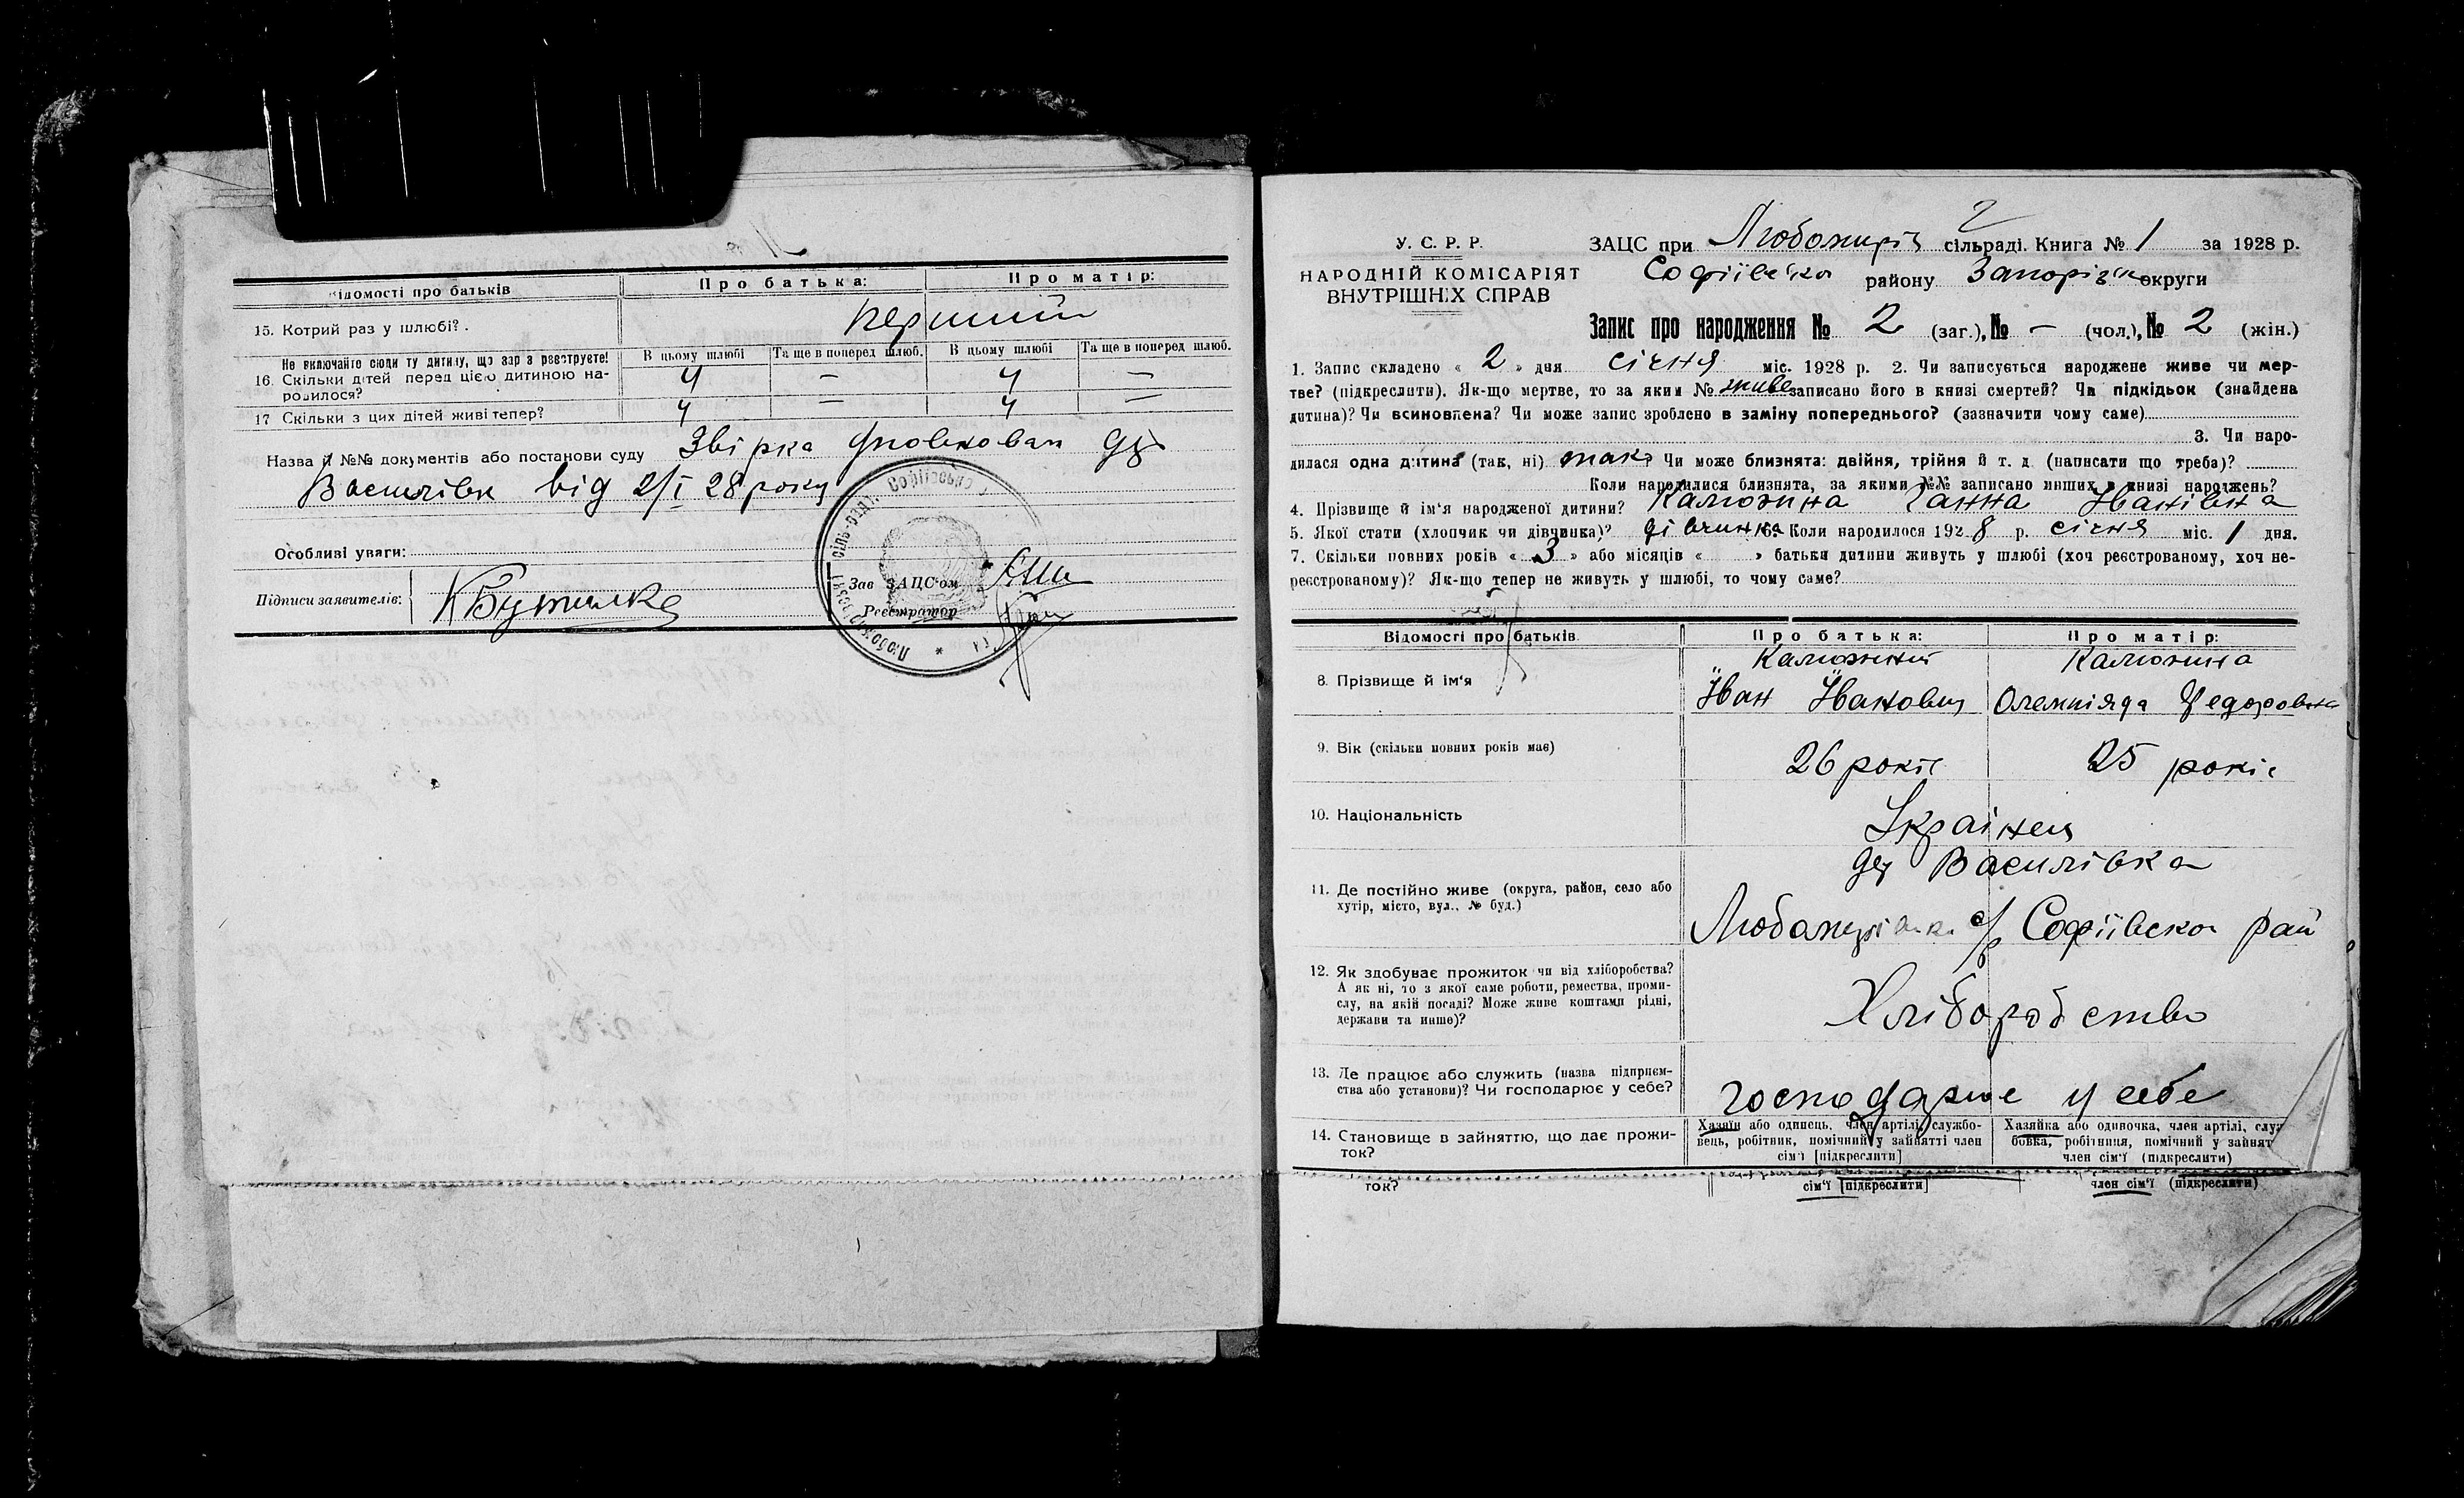 Відомості про батьків
Про батька:
Про матір:
15. Котрий раз у шлюбі?
перший
Не включайте сюди ту дитину, що зараз реєструєте!
16. Скільки дітей перед цією дитиною на-
родилося?
В цьому шлюбі
Та ще в поперед шлюб.
В цьому шлюбі
Та ще в поперед шлюб.
4 — 4 —
17 Скільки з цих дітей живі тепер?
4 — 4 —
Назва й №№ документів або постанови суду
Василівк від 2/I 28 року
Особливі уваги:
Підписи заявителів:
Зав ЗАЦС'ом
Реєстратор
У. С. Р. Р.
НАРОДНІЙ КОМІСАРІЯТ
ВНУТРІШНІХ СПРАВ
2
ЗАЦС при Любомирів сільраді. Книга № 1 за 1928 р.
Софіївсько району Запорізьк округи
Запис про народження № 2 (заг.), № — (чол.), № 2 (жін.)
1. Запис складено « 2 » дня січня міс. 1928 р. 2. Чи записується народжене живе чи мер-
тве? (підкреслити). Як-що мертве, то за яким № живе записано його в книзі смертей? Чи підкідьок (знайдена
дитина)? Чи всиновлена? Чи може запис зроблено в заміну попереднього? (зазначити чому саме)
3. Чи наро-
дилася одна дитина (так, ні) так Чи може близнята: двійня, трійня й т. д. (написати що треба)?
Коли народилися близнята, за якими №№ записано инших в книзі народжень?
4. Прізвище й ім'я народженої дитини? Калюжна Ганна Іванівна
5. Якої стати (хлопчик чи дівчинка)? дівчинка 6. Коли народилося 1928 р. січня міс. 1 дня.
7. Скільки повних років « 3 » або місяців « » батьки дитини живуть у шлюбі (хоч реєстрованому, хоч не-
реєстрованому)? Як-що тепер не живуть у шлюбі, то чому саме?
Відомості про батьків
Про батька:
Про матір:
8. Прізвище й ім'я
Калюжний
Іван Іванович
Калюжна
Олемпіяда Федоровна
9. Вік (скільки повних років має)
26 років
25 років
10. Національність
Українец
11. Де постійно живе (округа, район, село або
хутір, місто, вул., № буд.)
дер Василівка
Любомирівка с/р Софіївско рай
12. Як здобуває прожиток чи від хліборобства?
А як ні, то з якої саме роботи, ремества, проми-
слу, на якій посаді? Може живе коштами рідні,
держави та инше)?
Хліборобство
13. Де працює або служить (назва підприєм-
ства або установи)? Чи господарює у себе?
господарює у себе
14. Становище в зайняттю, що дає прожи-
ток?
Хазяїн або одинець, член артілі, службо-
вець, робітник, помічний у зайнятті член
сім'ї [підкреслити]
Хазяйка або одиночка, член артілі, служ
бовка, робітниця, помічний у зайнят
член сім'ї (підкреслити)
ток?
сім'ї [підкреслити]
член сім'ї (підкреслити)